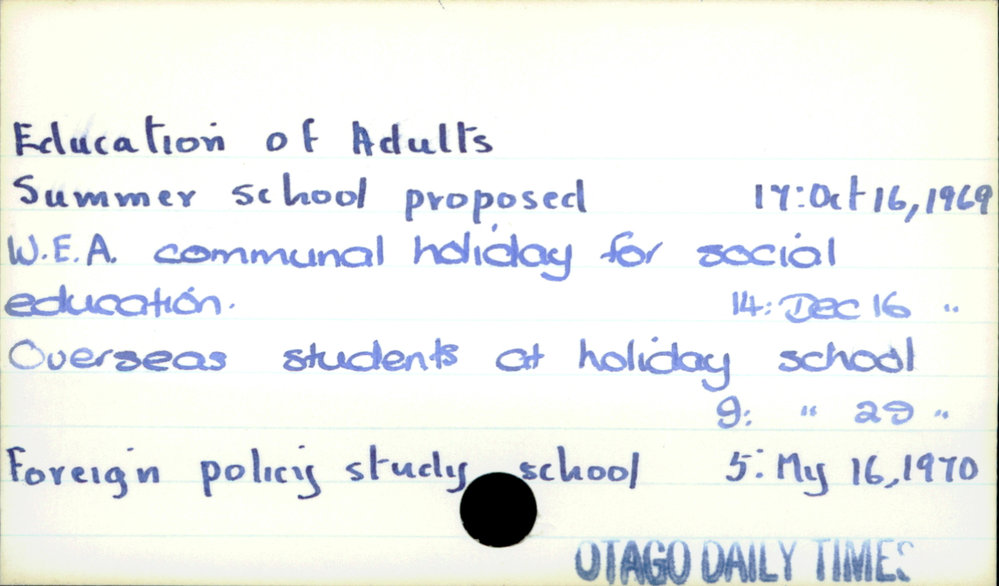 Education of Adults
Summer school proposed 17: Oct 16, 1969
W.E.A. communal holiday for social
education. 14: Dec 16 "
Overseas students at holiday school
9: " 29 "
Foreign policy study school 5: My 16, 1970
OTAGO DAILY TIMES